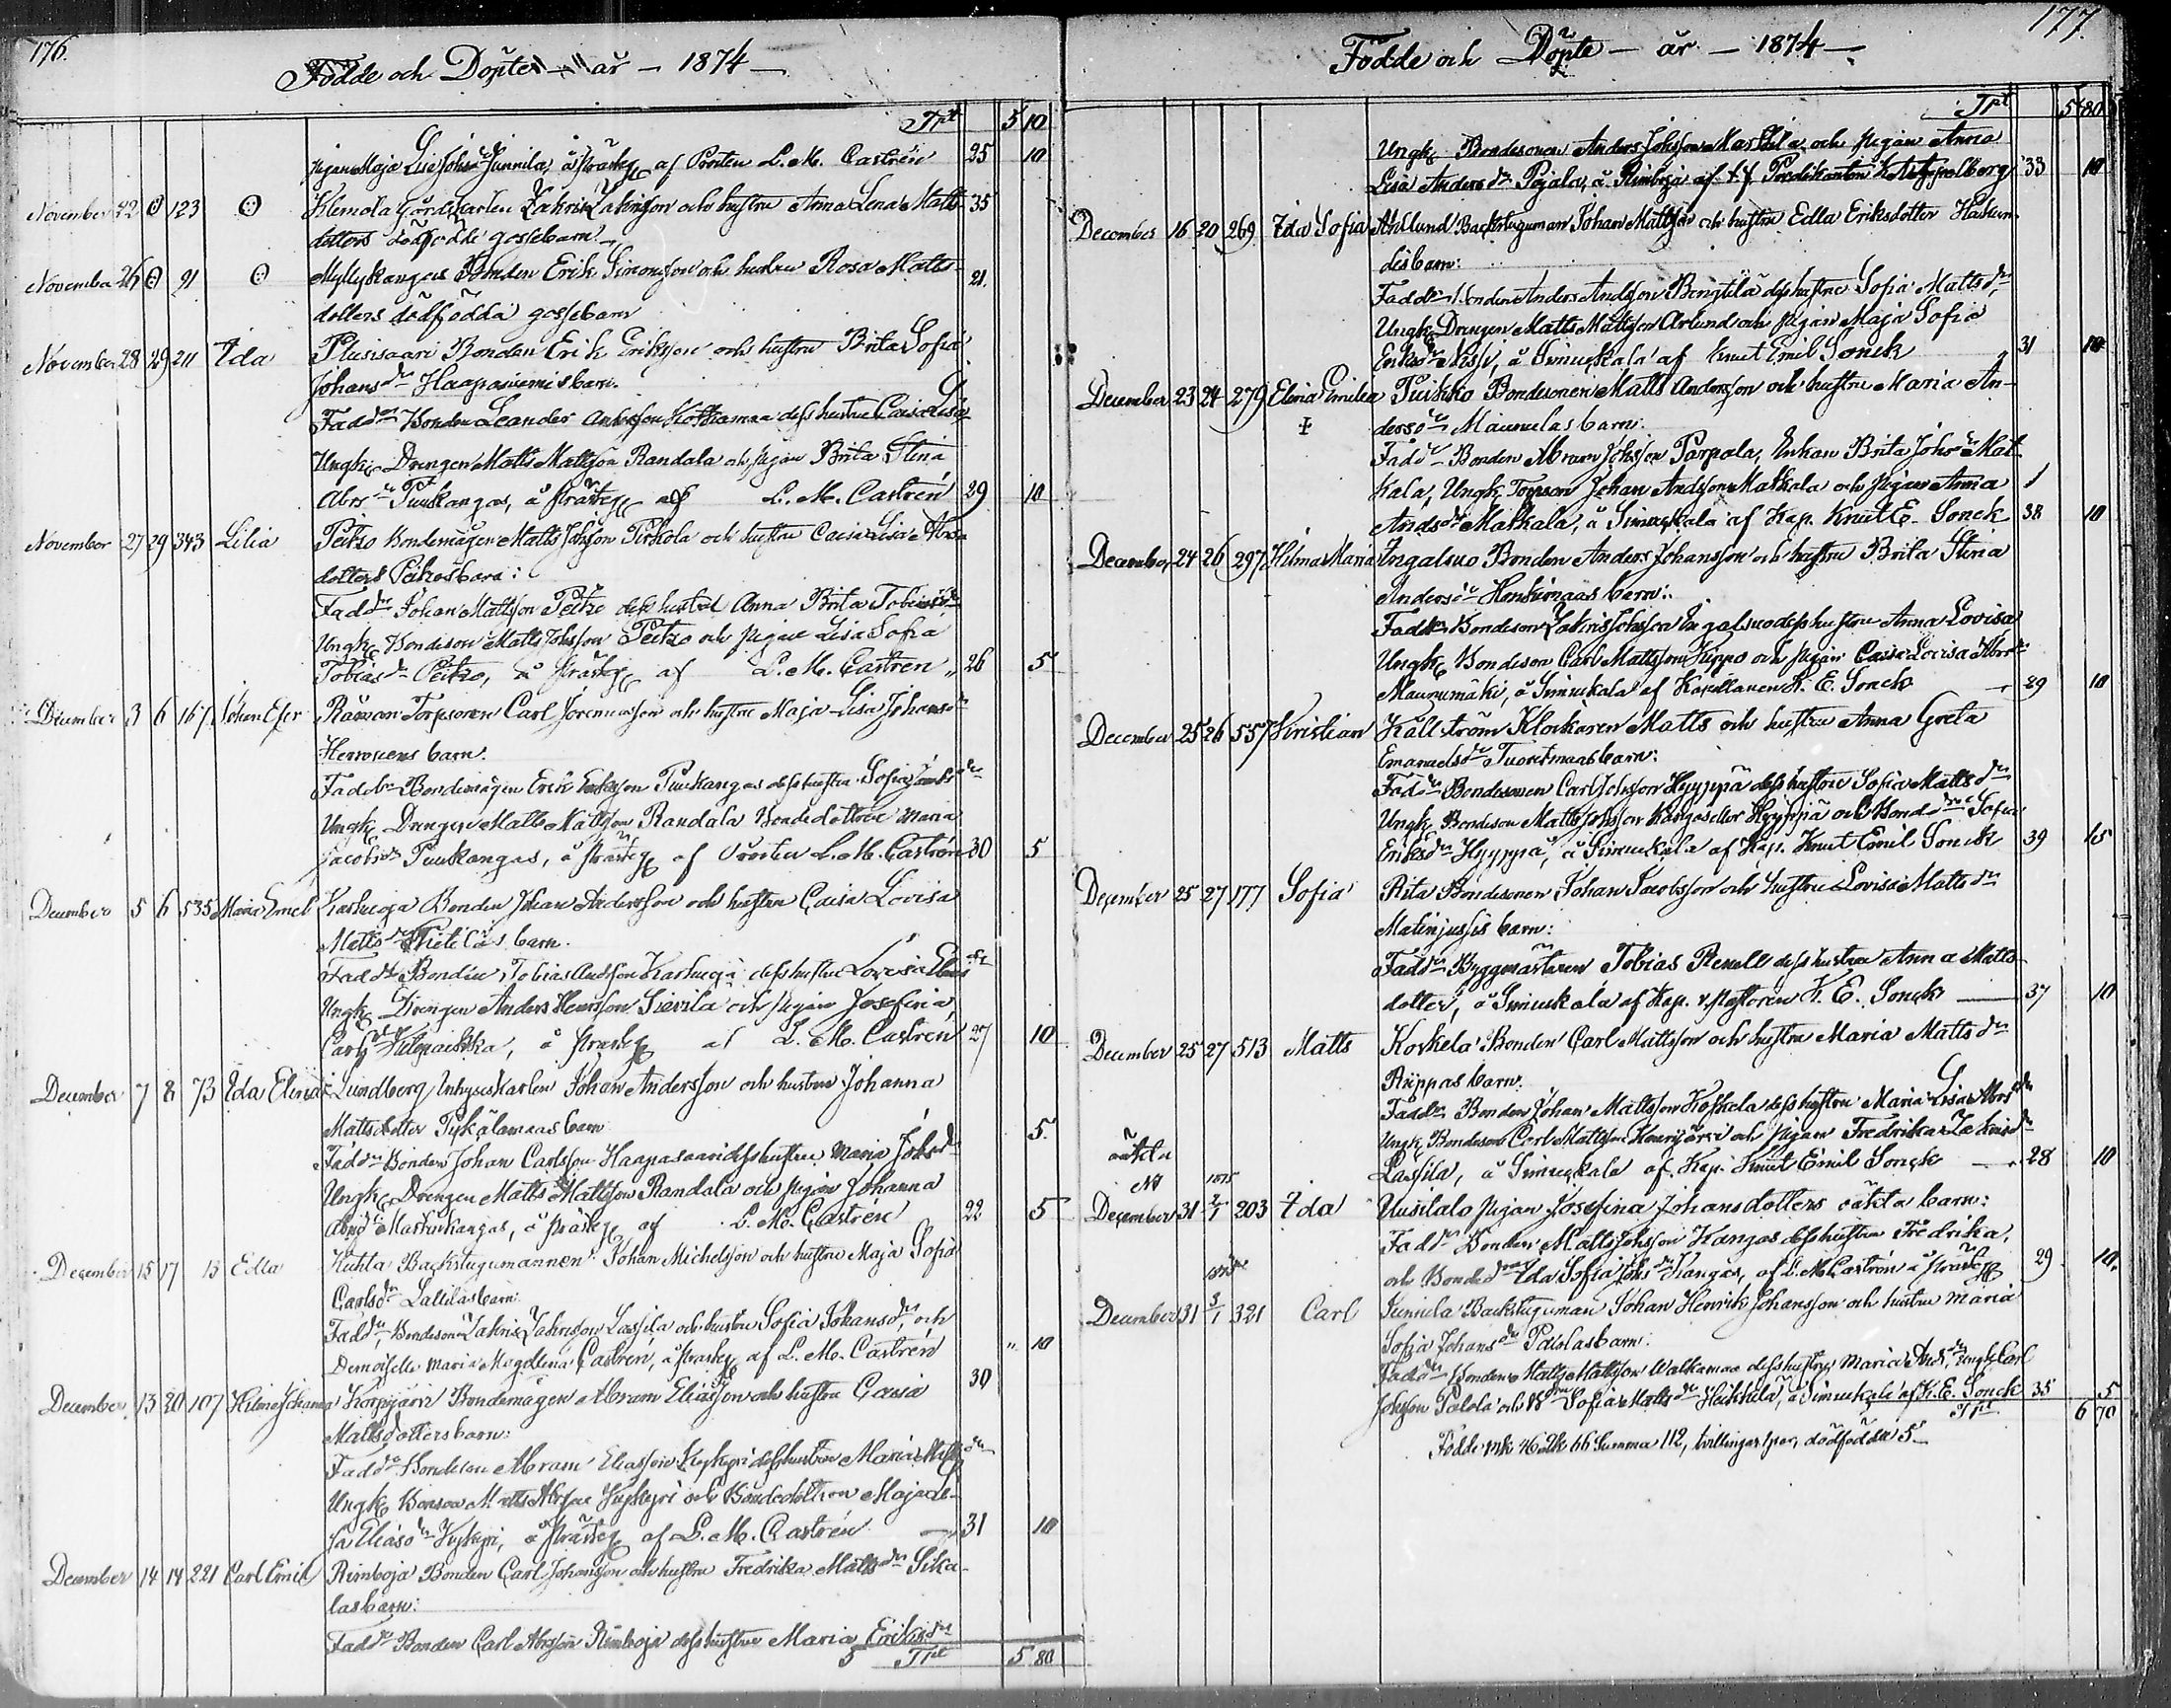 176.
Födde och Döpte - år - 1874 -
Trpt 5 10
pigan Maja Lisa Johsdr Junnila, å prästg af Prosten L. M. Castrén 25 10
November 22 123 Klemola Gårdskarlen Zakris Zakrisson och hustru Anna Lena Matts- 35
dotters dödfödde gossebarn.
November 26 91 Myllykangas Bonden Erik Simonsson och hustru Rosa Matts- 21.
dotters dödfödda gossebarn
November 28 29 211 Ida Plusisaari Bonden Erik Eriksson och hustru Brita Sofia
Johansdr Haapaniemis barn.
Faddr Bonden Leander Andersson dess hustru Caisa Lisa
Ungk. Drengen Matts Mattsson Randala och pigan Brita Stina
Abrsdr Puukangas, å prästg af L. M. Castrén 29 10
November 27 29 343 Lilia Peitzo Bondemågen Matts Johsson Pirkola och hustru Caisa Lisa Abra-
dotters Peitzos barn:
Faddr Johan Mattsson Peitzo dess hustru Anna Brita Tobiasdr
Ungk. Bondeson Matts Johsson Peitzo och pigan Lisa Sofia
Tobiasdr Peitzo, å prästg af L. M. Castrén 26 5
December 3 6 167 Johan Efr Räman Torpsonen Carl Jeremiasson och hustru Maja Lisa Johansdr
Herronens barn.
Faddr Bondemågen Erik Eriksson Puukangas dess hustru Sofia Jacobsdr
Ungk. Drengen Matts Mattsson Randala Bondedottren Maria
Jacobsdr Puukangas, å prästg af Prosten L. M. Castrén 30 5
December 5 6 535 Maria Emel Karhuoja Bonden Johan Andersson och hustru Caisa Lovisa
Mattsdr Fhitiläs barn.
Faddr Bonden Tobias Andsson Karhuoja dess hustru Lovisa Eliasdr
Ungk. Drengen Anders Henrsson Sievila och pigan Josefina
Carlsdr, å prästg af L. M. Castrén 27 10
December 7 8 73 Ida Elena Lundberg Inhyseskarlen Johan Andersson och hustru Johanna
Mattsdotter Pykälämaas barn 5.
Faddr Bonden Johan Carlsson Haapasaari dess hustru Maria Johsdr
Ungk. Drengen Matts Mattsson Randala och pigan Johanna
Abrsdr Markuskangas, å prästg af L. M. Castrén 22 5
December 15 17 15 Edla Huhta Backstugumannen Johan Michelsson och hustru Maja Sofia
Carlsdr Lallilas barn:
Faddr Bondeson Zakris Zakrisson Lassila och hustru Sofia Johansdr, och
Demoiselle Maria Magdlena Castrén, å prästg af L. M. Castrén " 10
30
December 13 20 107 Hilma Johanna Korpijärvi Bondemågen Abram Eliasson och hustru Caisa
Mattsdotters barn:
Faddr Bondeson Abram Eliasson dess hustru Maria Mattsdr
Ungk. Bonson Matts Abrsson och Bondedottren Maja Li-
sa Eliasdr, å prästg af L. M. Castrén 31 10
December 14 14 221 Carl Emil Rimboja Bonden Carl Johansson och hustru Fredrika Mattsdr Sika-
las barn:
Faddr Bonden Carl Abrsson Rimboja dess hustru Maria Eriksdr
Trpt 5 80
177.
Födde och Döpte - år - 1874 -
Trpt 5 80
Ungk. Bondesonen Anders Johsson Marttila och pigan Anna
Lisa Andersdr Pajala, å Rimboja af t.f. Predikanten K. A. Appelberg 33 10
December 16 20 269 Ida Sofia Ahllund Backstuguman Johan Mattsson och hustru Edla Eriksdotter Hakun-
dis barn:
Faddr Bonden Anders Andsson Bengtilä dess hustru Sofia Mattsdr,
Ungk. Drengen Matts Mattsson Arlund och pigan Maja Sofia
Eriksdr, å Simuskala af Knut Emil Sonck 31 10
December 23 24 279 Elena Emilia Puikko Bondesonen Matts Andersson och hustru Maria An-
dersdr Maunulas barn:
Faddr Bonden Abram Johsson Parpala, Enkan Brita Johsdr Mat-
kala, Ungk. Torpson Johan Andsson Matkala och pigan Anna
Andsdr Matkala, å Simuskala af Kap. Knut E. Sonck 38 10
December 24 26 297 Hilma Maria Ingalsuo Bonden Anders Johansson och hustru Brita Stina
Andersdr Honkimaas barn:
Faddr Bondeson Zakris Johsson Ingalsuo dess hustru Anna Lovisa
Ungk. Bondeson Carl Mattsson Huppo och pigan Caisa Lovisa Abrsdr
Maunumäki, å Simuskala af Kapellanen K. E. Sonck 29 10
December 25 26 557 Kristian Källström Klockaren Matts och hustru Anna Greta
Emanuelsdr Tuorilmaas barn:
Faddr Bondesonen Carl Johsson Hyyppä dess hustru Sofia Mattsdr
Ungk. Bondeson Matts Johsson Kangas eller Hyyppä och Bondedr Sofia
Eriksdr Hyyppä, å Simuskala af Kap. Knut Emil Sonck 39 15
December 25 27 177 Sofia Rita Bondesonen Johan Jacobsson och hustru Lovisa Mattsdr
Matinjussis barn:
Faddr Byggmästaren Tobias Renell dess hustru Anna Matts-
dotter, å Simuskala af Kap. v. pastoren K. E. Sonck 37 10
December 25 27 513 Matts Korkela Bonden Carl Mattsson och hustru Maria Mattsdr
Riippas barn.
Faddr Bonden Johan Mattsson Koskela dess hustru Maria Lisa Abrsdr
Ungk. Bondeson Carl Mattsson och pigan Fredrika Zakrisdr
Lassila, å Simuskala af Kap. Knut Emil Sonck 28 10
oäkta
No 1875
December 31 2/1 203 Ida Uusitalo pigan Josefina Johansdotters oäkta barn:
Faddr Bonden Matts Johsson Kangas dess hustru Fredrika,
och Bondedr Ida Sofia Johsdr Kangas, af L. M. Castrén å prästg 29 10.
1875
December 31 3/1 321 Carl Junnila Backstuguman Johan Henrik Johansson och hustru Maria
Sofia Johansdr Palolas barn:
Faddr Bonden Matts Mattsson Walkamaa dess hustru Maria Andsdr, Ungk. Carl
Johsson Palola och Bdr Sofia Mattsdr Heikkilä, å Simuskala af K. E. Sonck 35 5
Trpt 6 70
Födde mk 46 qk 66 Summa 112, tvillingar 1 par, dödfödde 5